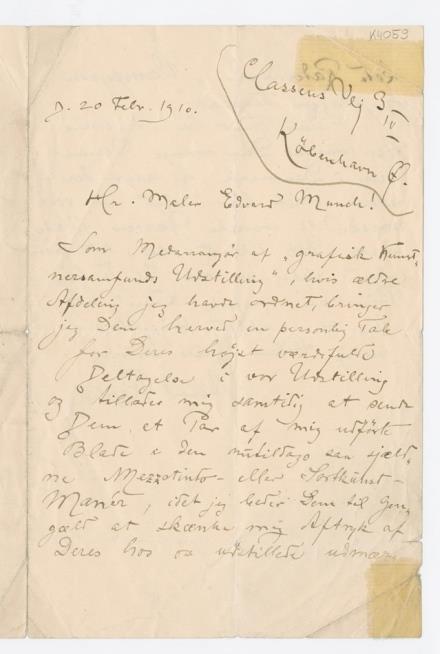 K4059
Classens Vej 3 IV
København Ø.
D. 20 Febr. 1910.
Hr. Maler Edvard Munch!
Som Medarrangør af "grafisk Kunst-
nersamfunds Udstilling", hvis ældre
Afdeling jeg havde ordnet, bringer
jeg Dem herved en personlig Tak
for Deres højst værdifulde
Deltagelse i vor Udstilling
og tillader mig samtidig at sende
Dem et Par af mig udførte
Blade i den nutildags saa sjæld-
ne Mezzotinto- eller Sortkunst-
Manér, idet jeg beder Dem til Gen-
gæld at skænke mig Aftryk af
Deres hos os udstillede udmær-